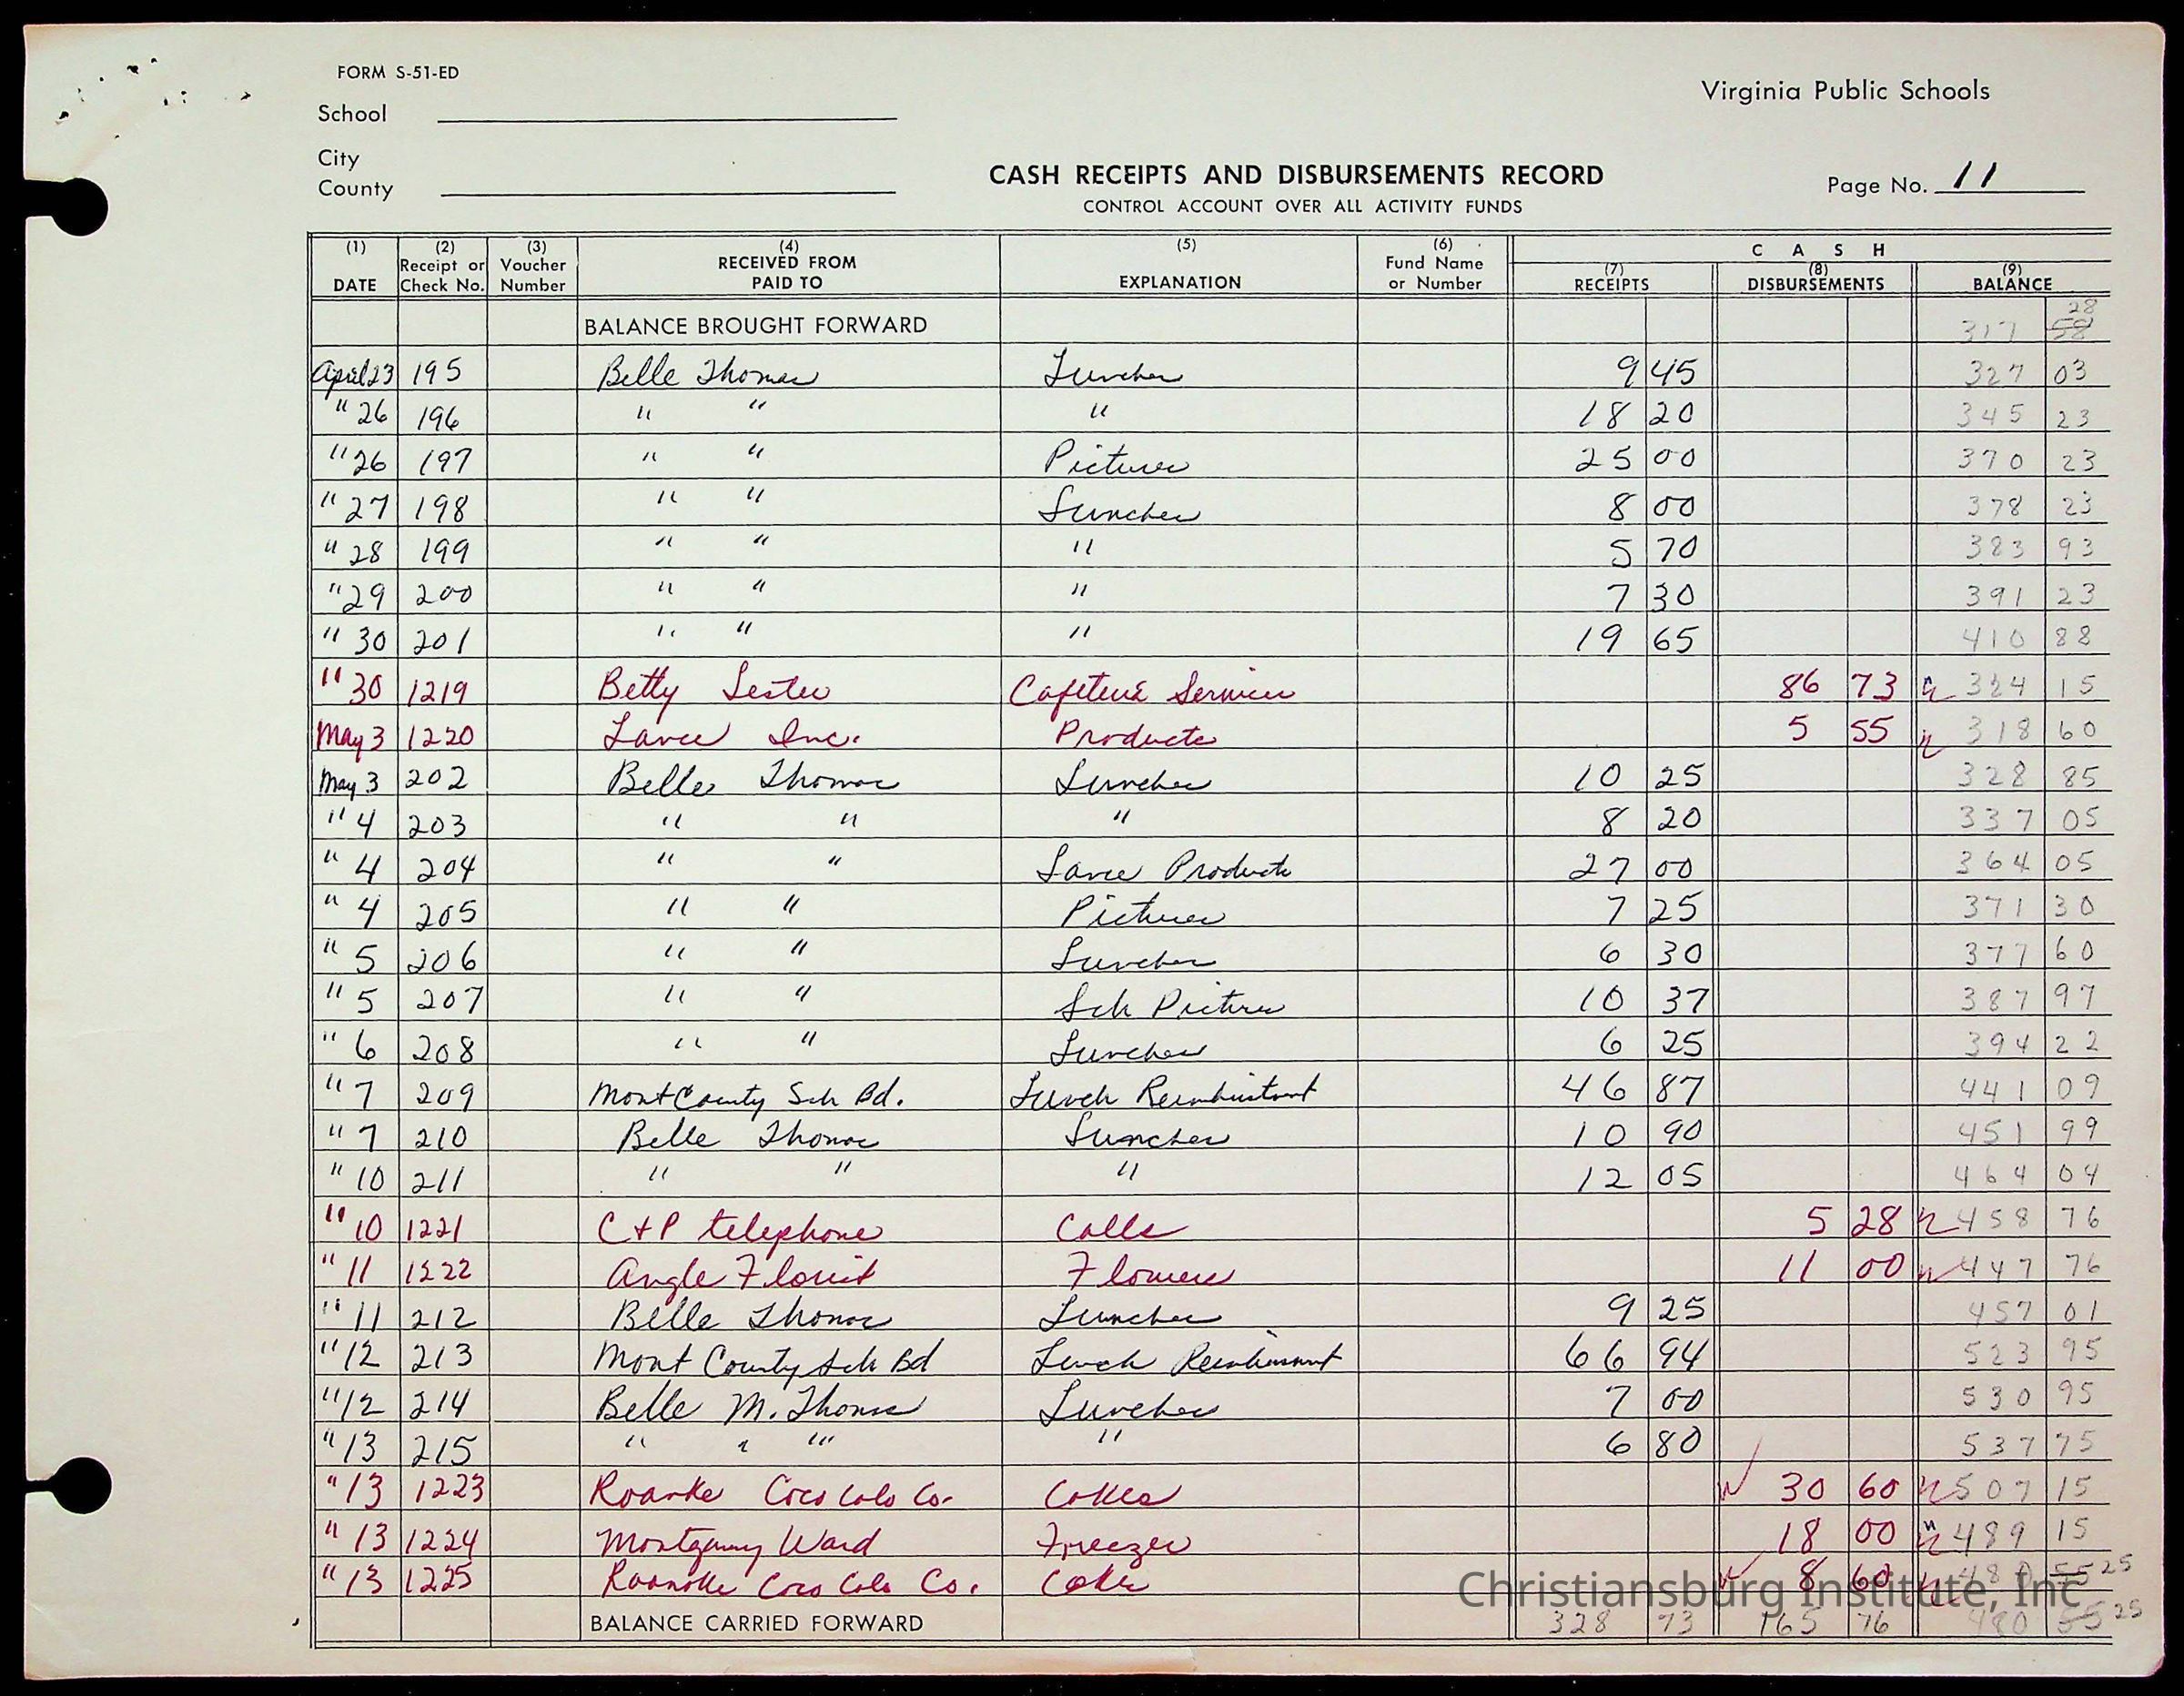 FORM S-51-ED
Virginia Public Schools
School
City
County
CASH RECEIPTS AND DISBURSEMENTS RECORD
CONTROL ACCOUNT OVER ALL ACTIVITY FUNDS
Page No. 11
(1) DATE (2) Receipt or Check No. (3) Voucher Number (4) RECEIVED FROM PAID TO (5) EXPLANATION (6) Fund Name or Number CASH (7) RECEIPTS (8) DISBURSEMENTS (9) BALANCE
BALANCE BROUGHT FORWARD 317 58 28
April 23 195 Belle Thomas Lunches 9 45 327 03
" 26 196 " " " 18 20 345 23
" 26 197 " " Pictures 25 00 370 23
" 27 198 " " Lunches 8 00 378 23
" 28 199 " " " 5 70 383 93
" 29 200 " " " 7 30 391 23
" 30 201 " " " 19 65 410 88
" 30 1219 Betty Lester Cafeteria Services 86 73 324 15
May 3 1220 Lance Inc. Products 5 55 318 60
May 3 202 Belle Thomas Lunches 10 25 328 85
" 4 203 " " " 8 20 337 05
" 4 204 " " Lance Products 27 00 364 05
" 4 205 " " Pictures 7 25 371 30
" 5 206 " " Lunches 6 30 377 60
" 5 207 " " Sch Pictures 10 37 387 97
" 6 208 " " Lunches 6 25 394 22
" 7 209 Mont County Sch Bd. Lunch 46 87 441 09
" 7 210 Belle Thomas Lunches 10 90 451 99
" 10 211 " " " 12 05 464 04
" 10 1221 C & P telephone Calls 5 28 458 76
" 11 1222 Angle Florist Flowers 11 00 447 76
" 11 212 Belle Thomas Lunches 9 25 457 01
" 12 213 Mont County Sch Bd Lunch 66 94 523 95
" 12 214 Belle M. Thomas Lunches 7 00 530 95
" 13 215 " " " " 6 80 537 75
" 13 1223 Roanoke Coco Cola Co. Cokes 30 60 507 15
" 13 1224 Montgomery Ward Freezer 18 00 489 15
" 13 1225 Roanoke Coco Cola Co. Coke 8 60 480 55 25
BALANCE CARRIED FORWARD 328 73 165 76 480 55 25
Christiansburg Institute, Inc